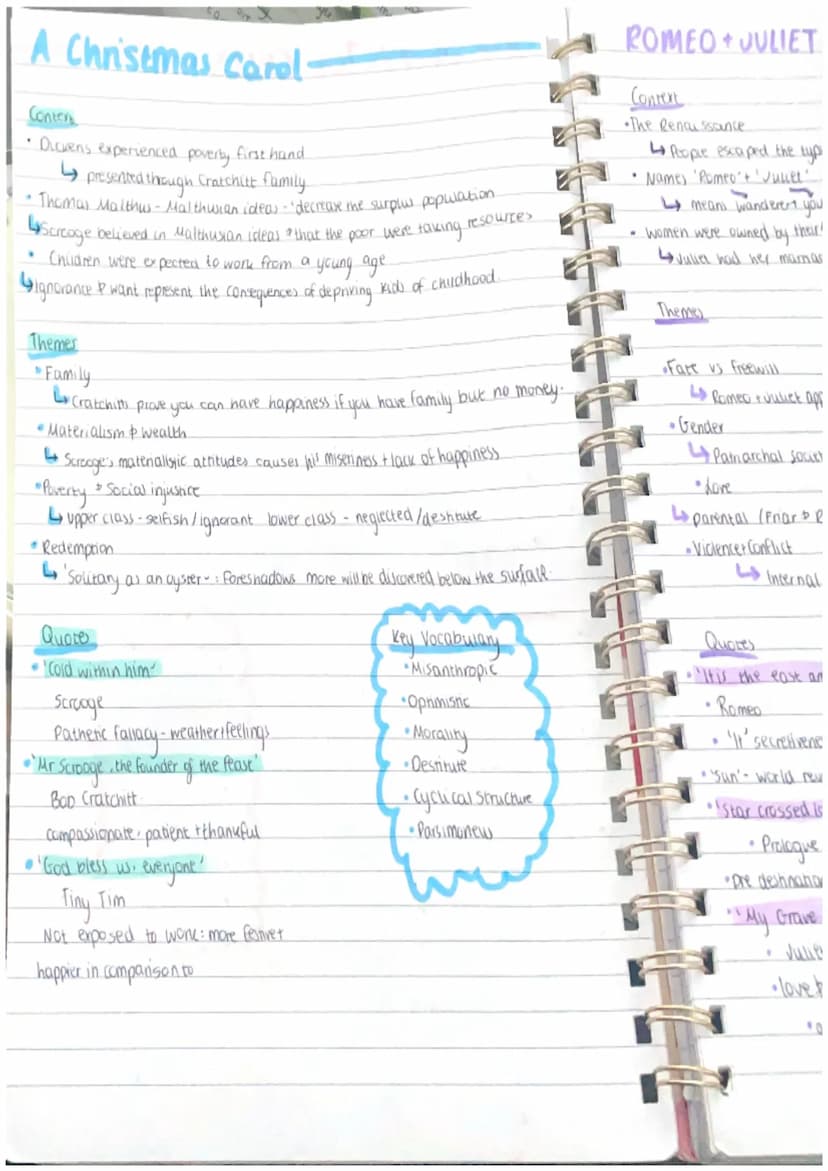 A Christmas Carol
Context
• Dickens experienced poverty first hand
↳ presented through Cratchitt family
• Thomas Malthus - Malthusian ideas - 'decrease the surplus population
↳ Scrooge believed in Malthusian ideas & that the poor were taking resources
• Children were expected to work from a young age
↳ ignorance & want represent the consequences of depriving kids of childhood
Themes
• Family
↳ Cratchitts prove you can have happiness if you have family but no money.
• Materialism & wealth
↳ Scrooge's materialistic attitudes causes his miseriness + lack of happiness
• Poverty & Social injustice
↳ upper class - selfish/ignorant lower class - neglected/destitute
• Redemption
↳ 'Solitary as an oyster' : Foreshadows more will be discovered below the surface.
Quotes
• 'Cold within him'
Scrooge
Pathetic fallacy - weather + feelings
• 'Mr Scrooge, the founder of the feast'
Bob Cratchitt
compassionate, patient + thankful
• 'God bless us, everyone'
Tiny Tim
Not exposed to work : more festive +
happier in comparison to
Key Vocabulary
• Misanthropic
• Optimistic
• Morality
• Destitute
• Cyclical Structure
• Parsimonews
ROMEO + JULIET
Context
• The Renaissance
↳ People escaped the
• Names 'Romeo' + 'Juliet'
↳ means wanderer +
• Women were owned by their
↳ Juliet had her
Themes
• Fate vs Freewill
↳ Romeo + Juliet
• Gender
↳ Patriarchal
• Love
↳ parental
• Violence + Conflict
↳ Internal
Quotes
• 'It is the east
• Romeo
• 'It'
• 'Sun' - world
• 'Star crossed
• Prologue
• Pre
• 'My Grave
•
• love
•